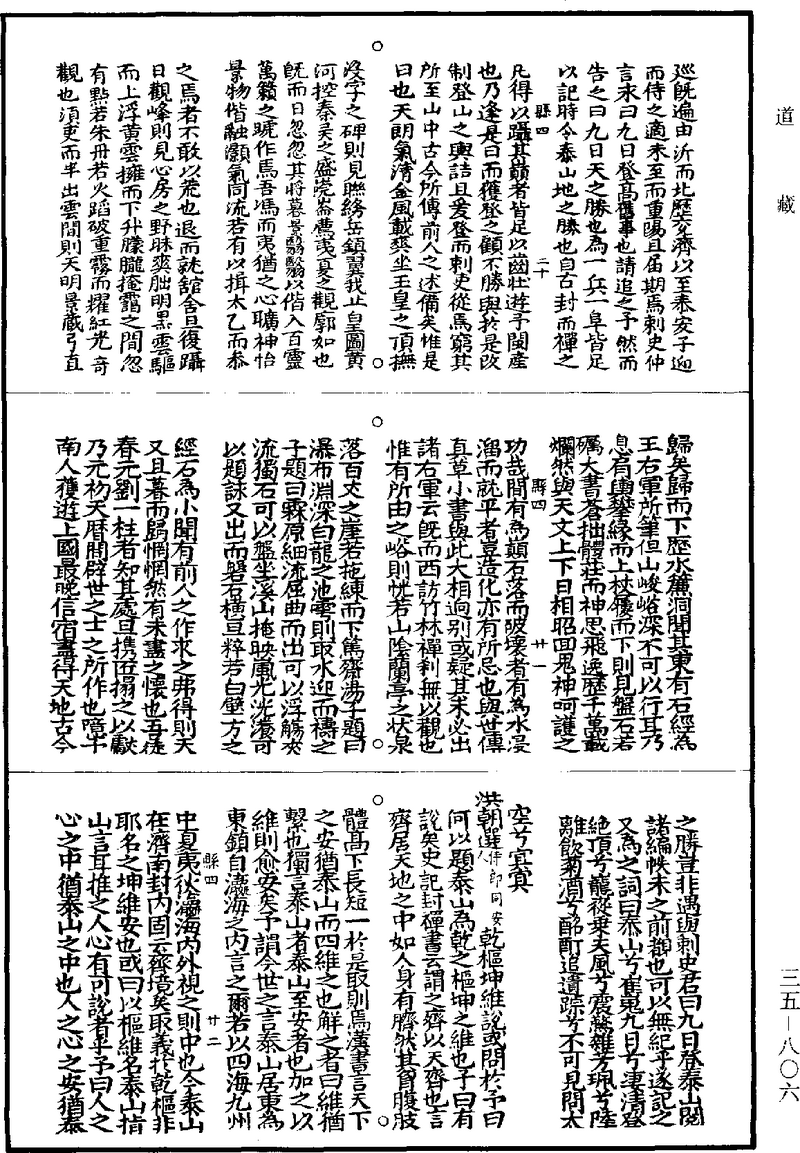 道藏
巡既遍由沂而北歷兗濟以至泰安子迎
而侍之適來至而重陽且届期焉刺史仲
言求曰九日登高舊事也請追之予然而
告之曰九日天之勝也為一兵一阜皆足
以記時令泰山地之勝也自古封而禪之
縣四
二十
凡得以躡其巔者皆足以齒壯遊予閩產
也乃逢是日而獲登之顧不勝與於是改
制登山之輿詰旦爰登而刺史從焉窮其
所至山中古今所傳前人之述備矣惟是
日也天朗氣清金風載爽坐玉皇之頂撫
沒字之碑則見聯絡岳鎮翼我止皇圖黃
河控秦吳之盛崇崙薦夷夏之觀廓如也
既而日忽忽其將暮景翳翳以偕入百靈
萬籟之號作焉吾馮而夷猶之心曠神怡
景物偕融灝氣同流若有以揖太乙而泰
之焉者不敢以荒也退而就舘舍旦復躡
日觀峰則見心房之野昧爽朏明黑雲驅
而上浮黃雲擁而下升朦朧掩靄之間忽
有點若朱丹若火蹈破重霧而燿紅光奇
觀也須臾而半出雲間則天明景藏弓直
歸矣歸而下歷水簾洞聞其東有石經為
王右軍所筆但山峻峪深不可以行耳乃
息肩輿攀緣而上杖履而下則見盤石若
礪大書蒼拙體壯而神思飛逸歷千萬載
爛然與天文上下日相昭回鬼神呵護之
縣四
廿一
功哉間有為顛石落而破壞者有為水浸
溜而就平者豈造化亦有所忌也與世傳
真草小書與此大相逈别或疑其未必出
諸右軍云既而西訪竹林禪刹無以觀也
惟有所由之峪則恍若山陰蘭亭之状泉
落百丈之崖若拖練而下篤齋湯子題曰
瀑布淵深白龍之池雩則取水迎而禱之
子題曰霖原細流屈曲而出可以浮觴夾
流獨石可以盤坐溪山掩映風光洸瀁可
以題詠又出而磐石橫亘粹若白壁方之
經石為小聞有前人之作求之弗得則天
又且暮而歸惘惘然有未盡之懷也吾徒
春元劉一柱者知其處旦携匠搨之以獻
乃元初天曆間辟世之士之所作也噫予
南人獲遊上國最晚信宿盡得天地古今
之勝豈非遇與刺史君曰九日登泰山閱
諸編帙未之前都也可以無紀乎遂記之
又為之詞曰泰山兮崔嵬九日兮凄清登
絶頂兮巃嵸乗天風兮震驚雜芳珮兮陸
離飲菊酒兮酩酊追遺踪兮不可見問太
空兮冥冥
洪朝選侍郎同安人
乾樞坤維說或問於予曰
何以題泰山為乾之樞坤之維也子曰有
說矣史記封禪書云謂之齊以天齊也言
齊居天地之中如人身有臍然其首腹肢
體高下長短一於是取則焉漢書言天下
之安猶泰山而四維之也解之者曰維猶
繫也獨言泰山者泰山至安者也加之以
維則愈安矣予謂今世之言泰山居東為
東鎮自瀛海之内言之爾若以四海九州
縣四
廿二
中夏夷狄瀛海内外視之則中也今泰山
在濟南封内固云齊境矣取義於乾樞非
耶名之坤維安也或曰以樞維名泰山指
山言耳推之人心有可說者乎予曰人之
心之中猶泰山之中也人之心之安猶泰
三五－八〇六